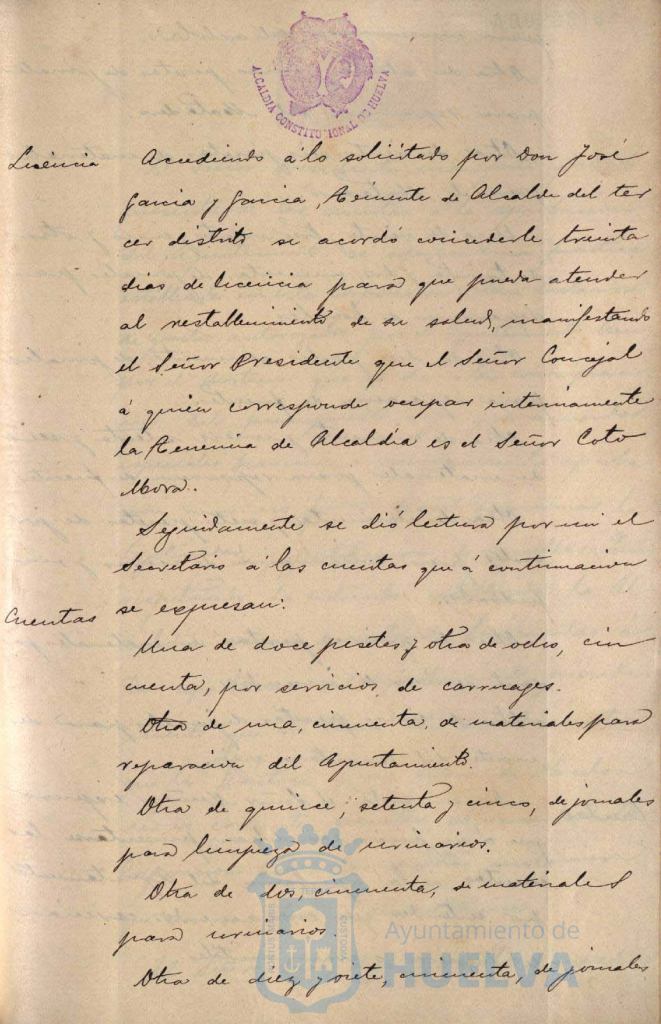 ALCALDIA CONSTITUCIONAL DE HUELVA
Licencia
Accediendo á lo solicitado por Don José
Garcia y Garcia, Teniente de Alcalde del ter
cer distrito se acordó concederle treinta
dias de licencia para que pueda atender
al restablecimiento de su salud, manifestando
el Señor Presidente que el Señor Concejal
á quien corresponde ocupar interinamente
la Tenencia de Alcaldía es el Señor Coto
Mora.
Seguidamente se dió lectura por mi el
Secretario á las cuentas que á continuacion
Cuentas
se expresan:
Una de doce pesetas y otra de ocho, cin
cuenta, por servicios de carruages.
Otra de una, cincuenta, de materiales para
reparacion del Ayuntamiento.
Otra de quince, setenta y cinco, de jornales
para limpieza de urinarios.
Otra de dos, cincuenta, de materiales
para urinarios.
Otra de diez y siete, cincuenta, de jornales
Ayuntamiento de
HUELVA